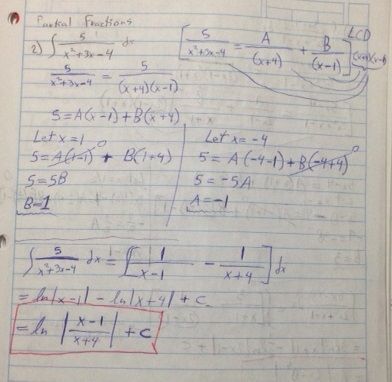 Partial Fractions
2) ∫ 5/(x²+3x-4) dx
[5/(x²+3x-4) = A/(x+4) + B/(x-1)] LCD (x+4)(x-1)
5/(x²+3x-4) = 5/((x+4)(x-1))
5 = A(x-1) + B(x+4)
Let x=1
5 = A(1-1) + B(1+4)
0
5 = 5B
B = 1
Let x = -4
5 = A(-4-1) + B(-4+4)
0
5 = -5A
A = -1
∫ 5/(x²+3x-4) dx = ∫[1/(x-1) - 1/(x+4)] dx
= ln|x-1| - ln|x+4| + C
= ln |(x-1)/(x+4)| + C